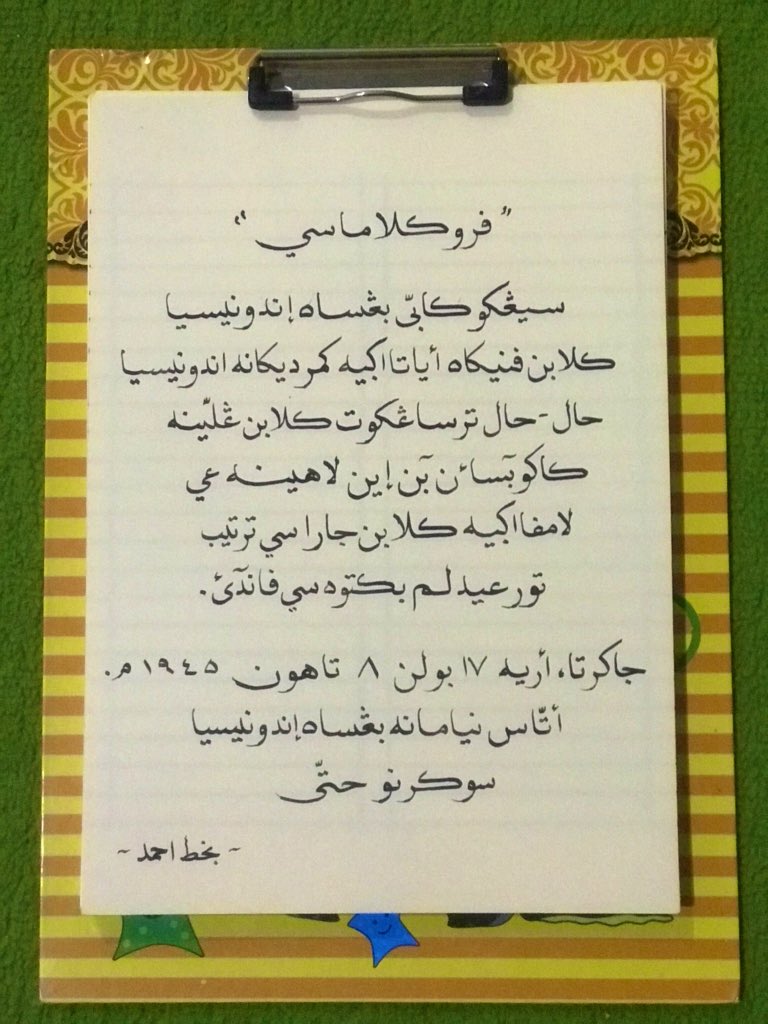 "فروكلاماسي"
سيڠكو كابىّ بڠساه إندونيسيا
كلابن فنيكاه أياتااكيه كمرديكانه اندونيسيا
حال-حال ترساڠكوت كلابن ڠلّينه
كاكوبٓسائن بٓن إين لاهينه عي
لامفااكيه كلابن جارا سي ترتيب
تور عيدلم بكتوه سي فاندٓئ.
جاكرتا، أريه ١٧ بولن ٨ تاهون ١٩٤٥ م.
أتّاس نيامانه بڠساه إندونيسيا
سوكرنو حتّى
~ بخط احمد ~